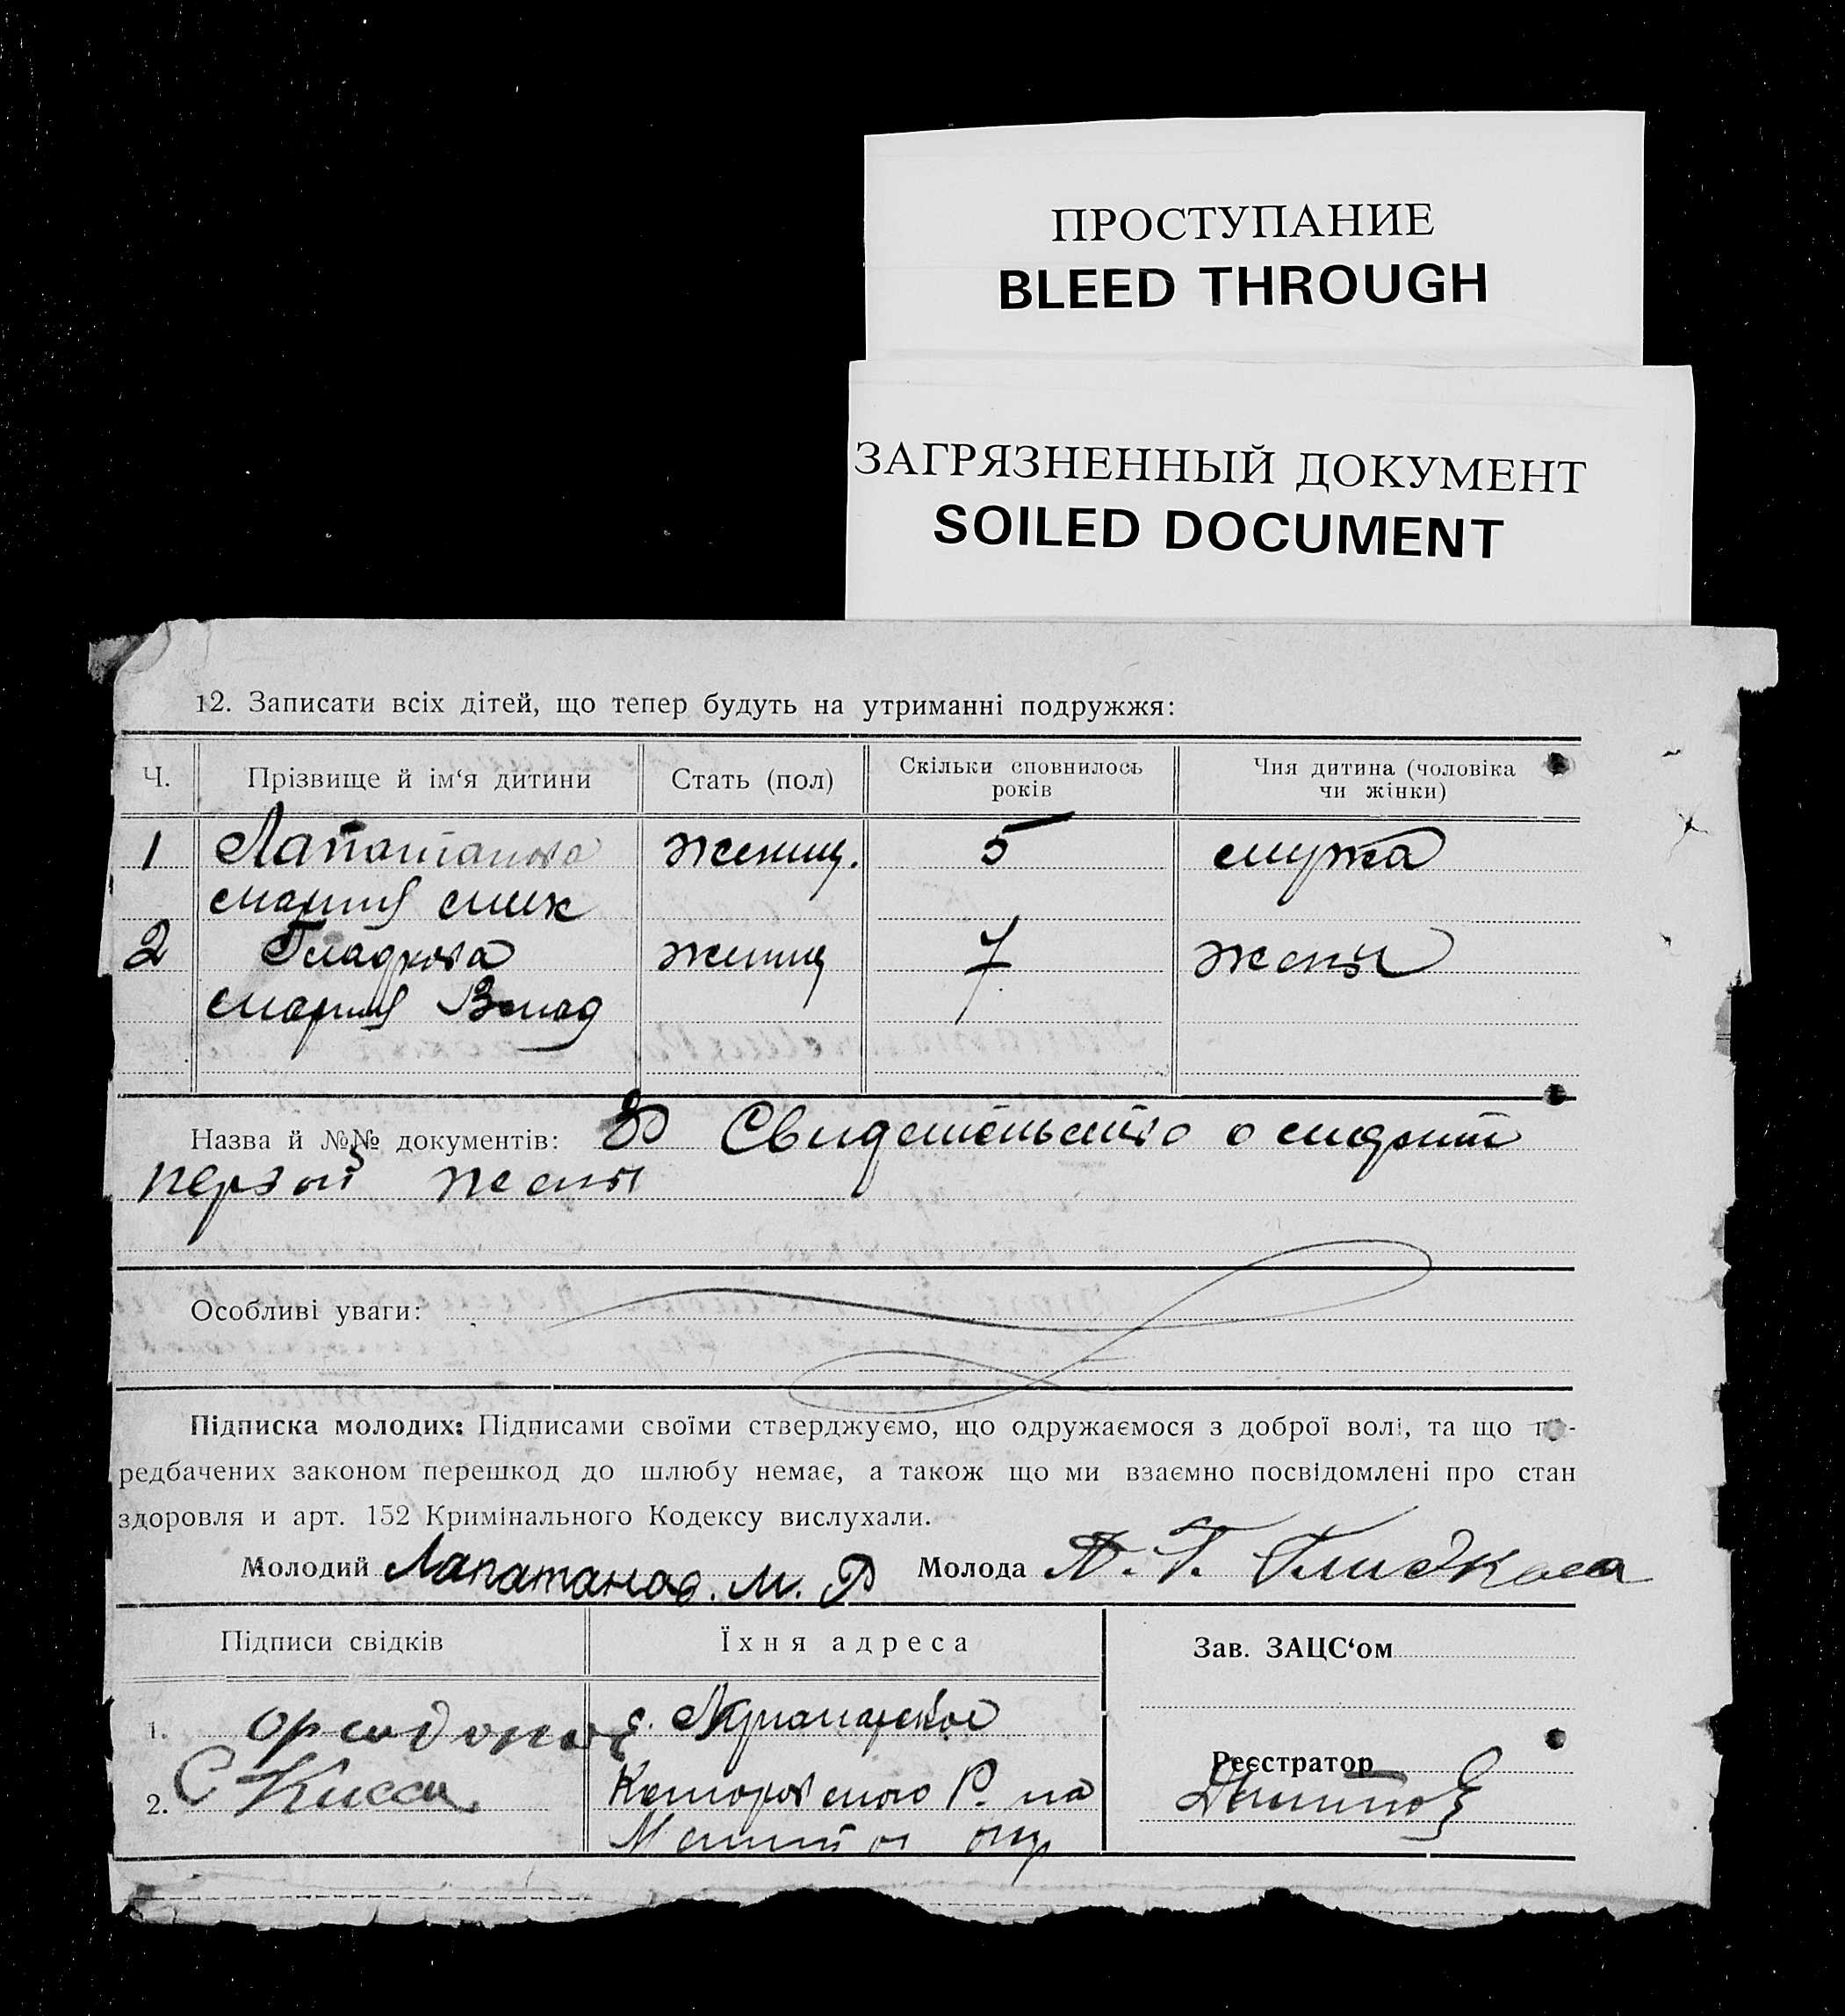 ПРОСТУПАНИЕ
BLEED THROUGH
ЗАГРЯЗНЕННЫЙ ДОКУМЕНТ
SOILED DOCUMENT
12. Записати всіх дітей, що тепер будуть на утриманні подружжя:
Ч. Прізвище й ім‘я дитини Стать (пол) Скільки сповнилось років Чия дитина (чоловіка чи жінки)
1 Лапатанова женщ. 5 мужа
Мария Мих
2 Гладкова женщ 7 жены
Мария Влад
Назва й №№ документів: Свидетельство о смерти
первой жены
Особливі уваги:
Підписка молодих: Підписами своїми стверджуємо, що одружаємося з доброї волі, та що пе-
редбачених законом перешкод до шлюбу немає, а також що ми взаємно посвідомлені про стан
здоровля и арт. 152 Кримінального Кодексу вислухали.
Молодий Лапатанов. М. Ф Молода Гладкова
Підписи свідків Їхня адреса Зав. ЗАЦС‘ом
1. с.
Реєстратор
2. Р. на
окр